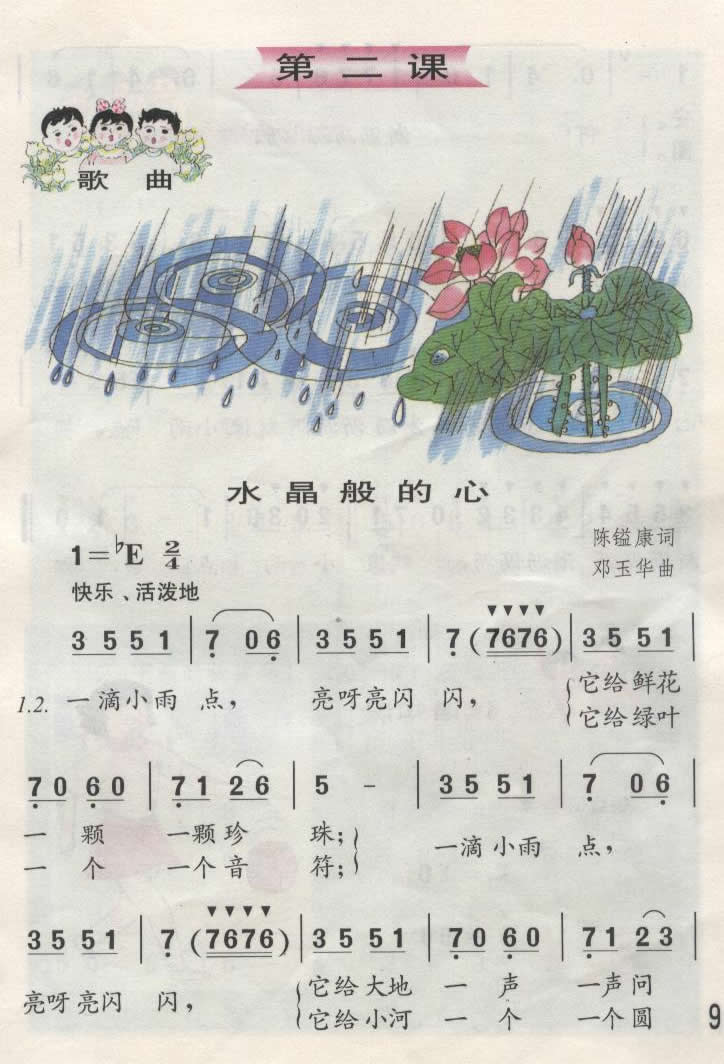 第二课
歌曲
水晶般的心
1=♭E 2/4
陈镒康词
快乐、活泼地
邓玉华曲
3 5 5 1 | 7 0 6 | 3 5 5 1 | 7 ( 7 6 7 6 ) | 3 5 5 1 |
1.2. 一滴小雨 点， 亮呀亮闪 闪， 它给鲜花
它给绿叶
7 0 6 0 | 7 1 2 6 | 5 - | 3 5 5 1 | 7 0 6 |
一 颗 一颗珍 珠； 一滴小雨 点，
一 个 一个音 符；
3 5 5 1 | 7 ( 7 6 7 6 ) | 3 5 5 1 | 7 0 6 0 | 7 1 2 3 |
亮呀亮闪 闪， 它给大地 一 声 一声问
它给小河 一 个 一个圆
9